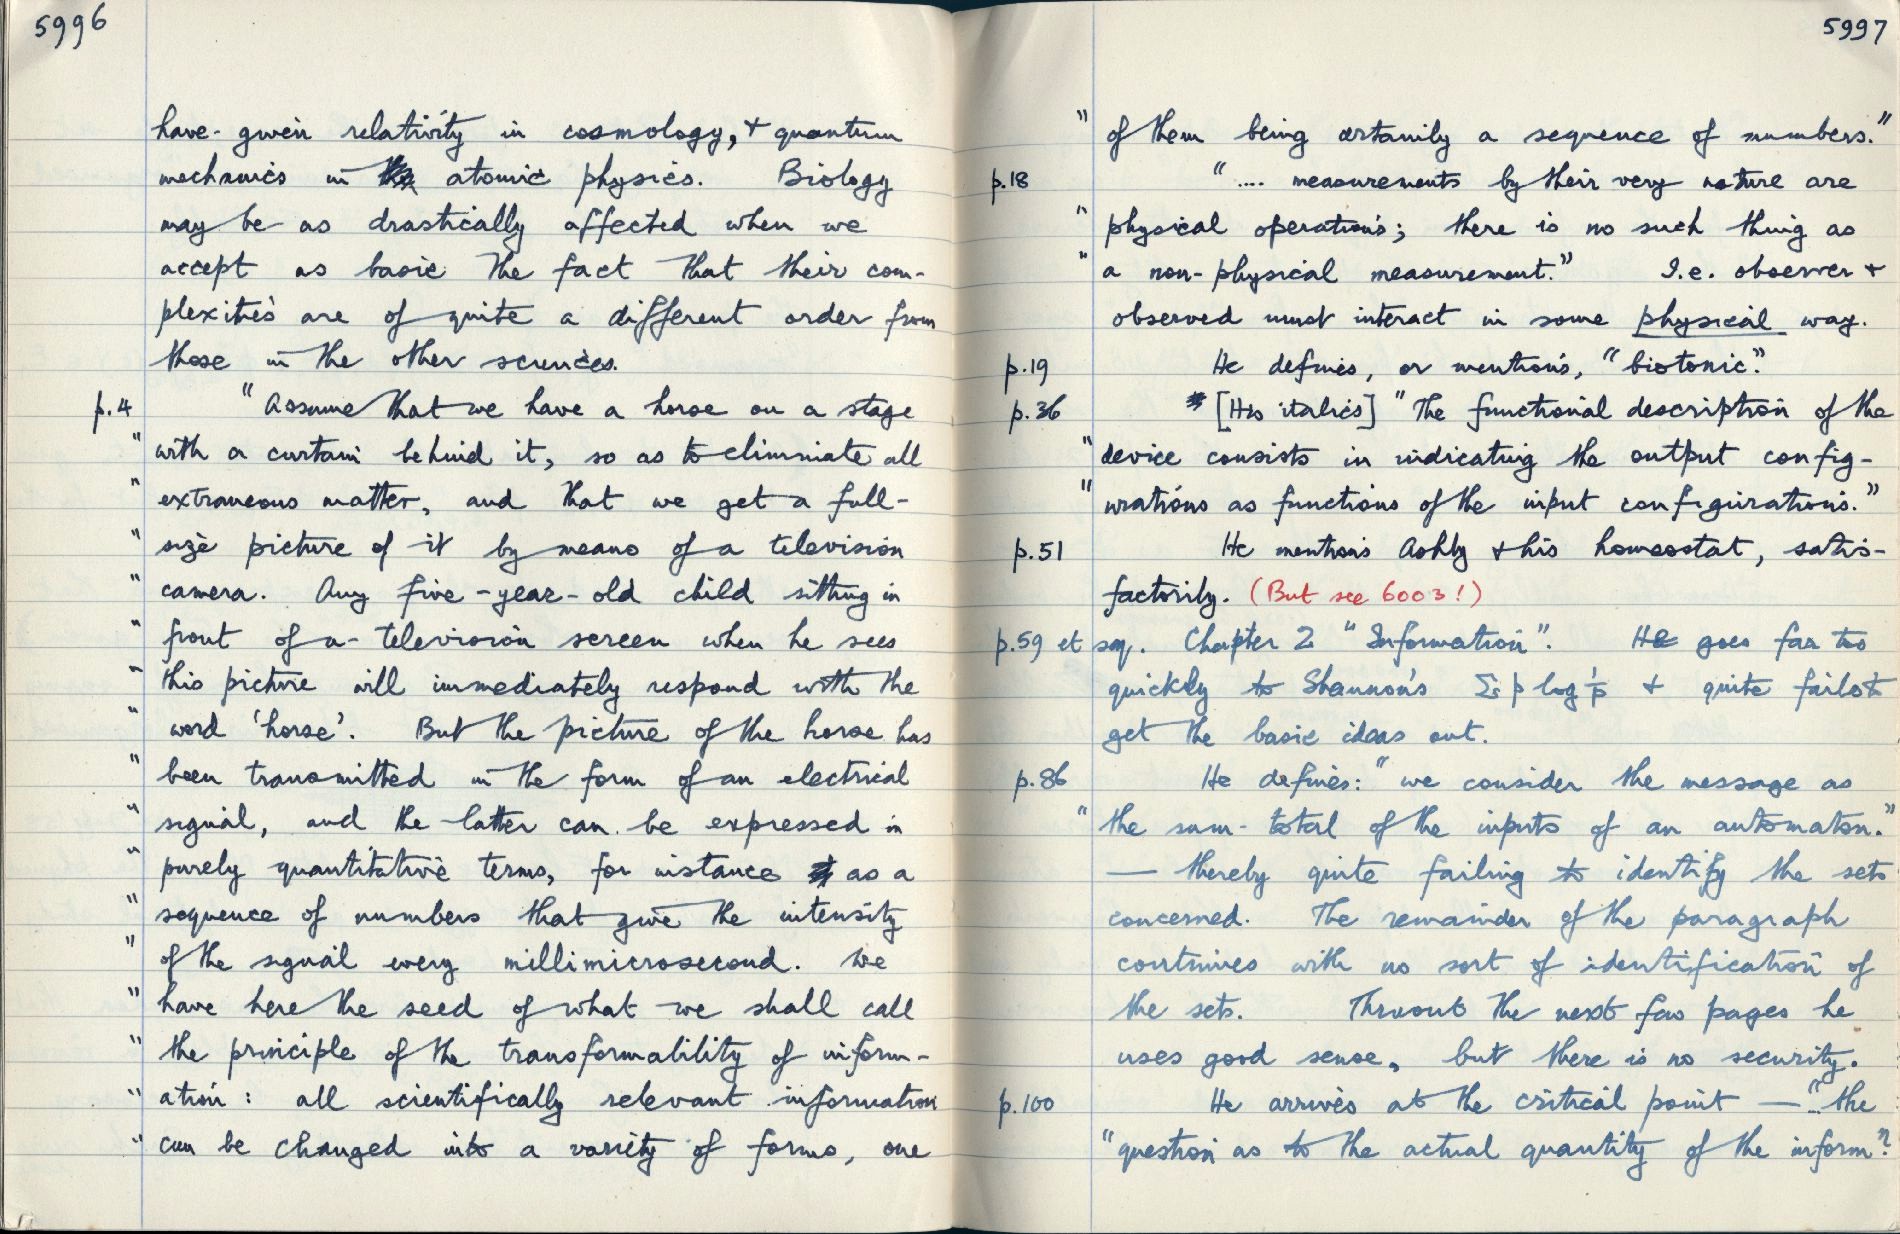 5996
have given relativity in cosmology, + quantum
mechanics in atomic physics. Biology
may be as drastically affected when we
accept as basic the fact that their com-
plexities are of quite a different order from
those in the other sciences.
p.4 "Assume that we have a horse on a stage
" with a curtain behind it, so as to eliminate all
" extraneous matter, and that we get a full-
" size picture of it by means of a television
" camera. Any five-year-old child sitting in
" front of a television screen when he sees
" this picture will immediately respond with the
" word 'horse'. But the picture of the horse has
" been transmitted in the form of an electrical
" signal, and the latter can be expressed in
" purely quantitative terms, for instance as a
" sequence of numbers that give the intensity
" of the signal every millimicrosecond. We
" have here the seed of what we shall call
" the principle of the transformability of inform-
" ation: all scientifically relevant information
" can be changed into a variety of forms, one
5997
" of them being certainly a sequence of numbers."
p.18 ".... measurements by their very nature are
" physical operations; there is no such thing as
" a non-physical measurement." I.e. observer +
observed must interact in some physical way.
p.19 He defines, or mentions, "biotonic".
p.36 [His italics] "The functional description of the
" device consists in indicating the output config-
" urations as functions of the input configurations."
p.51 He mentions Ashby + his homeostat, satis-
factorily. (But see 6003!)
p.59 et sq. Chapter 2 "Information". He goes far too
quickly to Shannon's Σ p log 1/p + quite fails to
get the basic ideas out.
p.86 He defines: "we consider the message as
" the sum-total of the inputs of an automaton."
— thereby quite failing to identify the sets
concerned. The remainder of the paragraph
continues with no sort of identification of
the sets. Thruout the next few pages he
uses good sense, but there is no security.
p.100 He arrives at the critical point — "..the
" question as to the actual quantity of the inform?